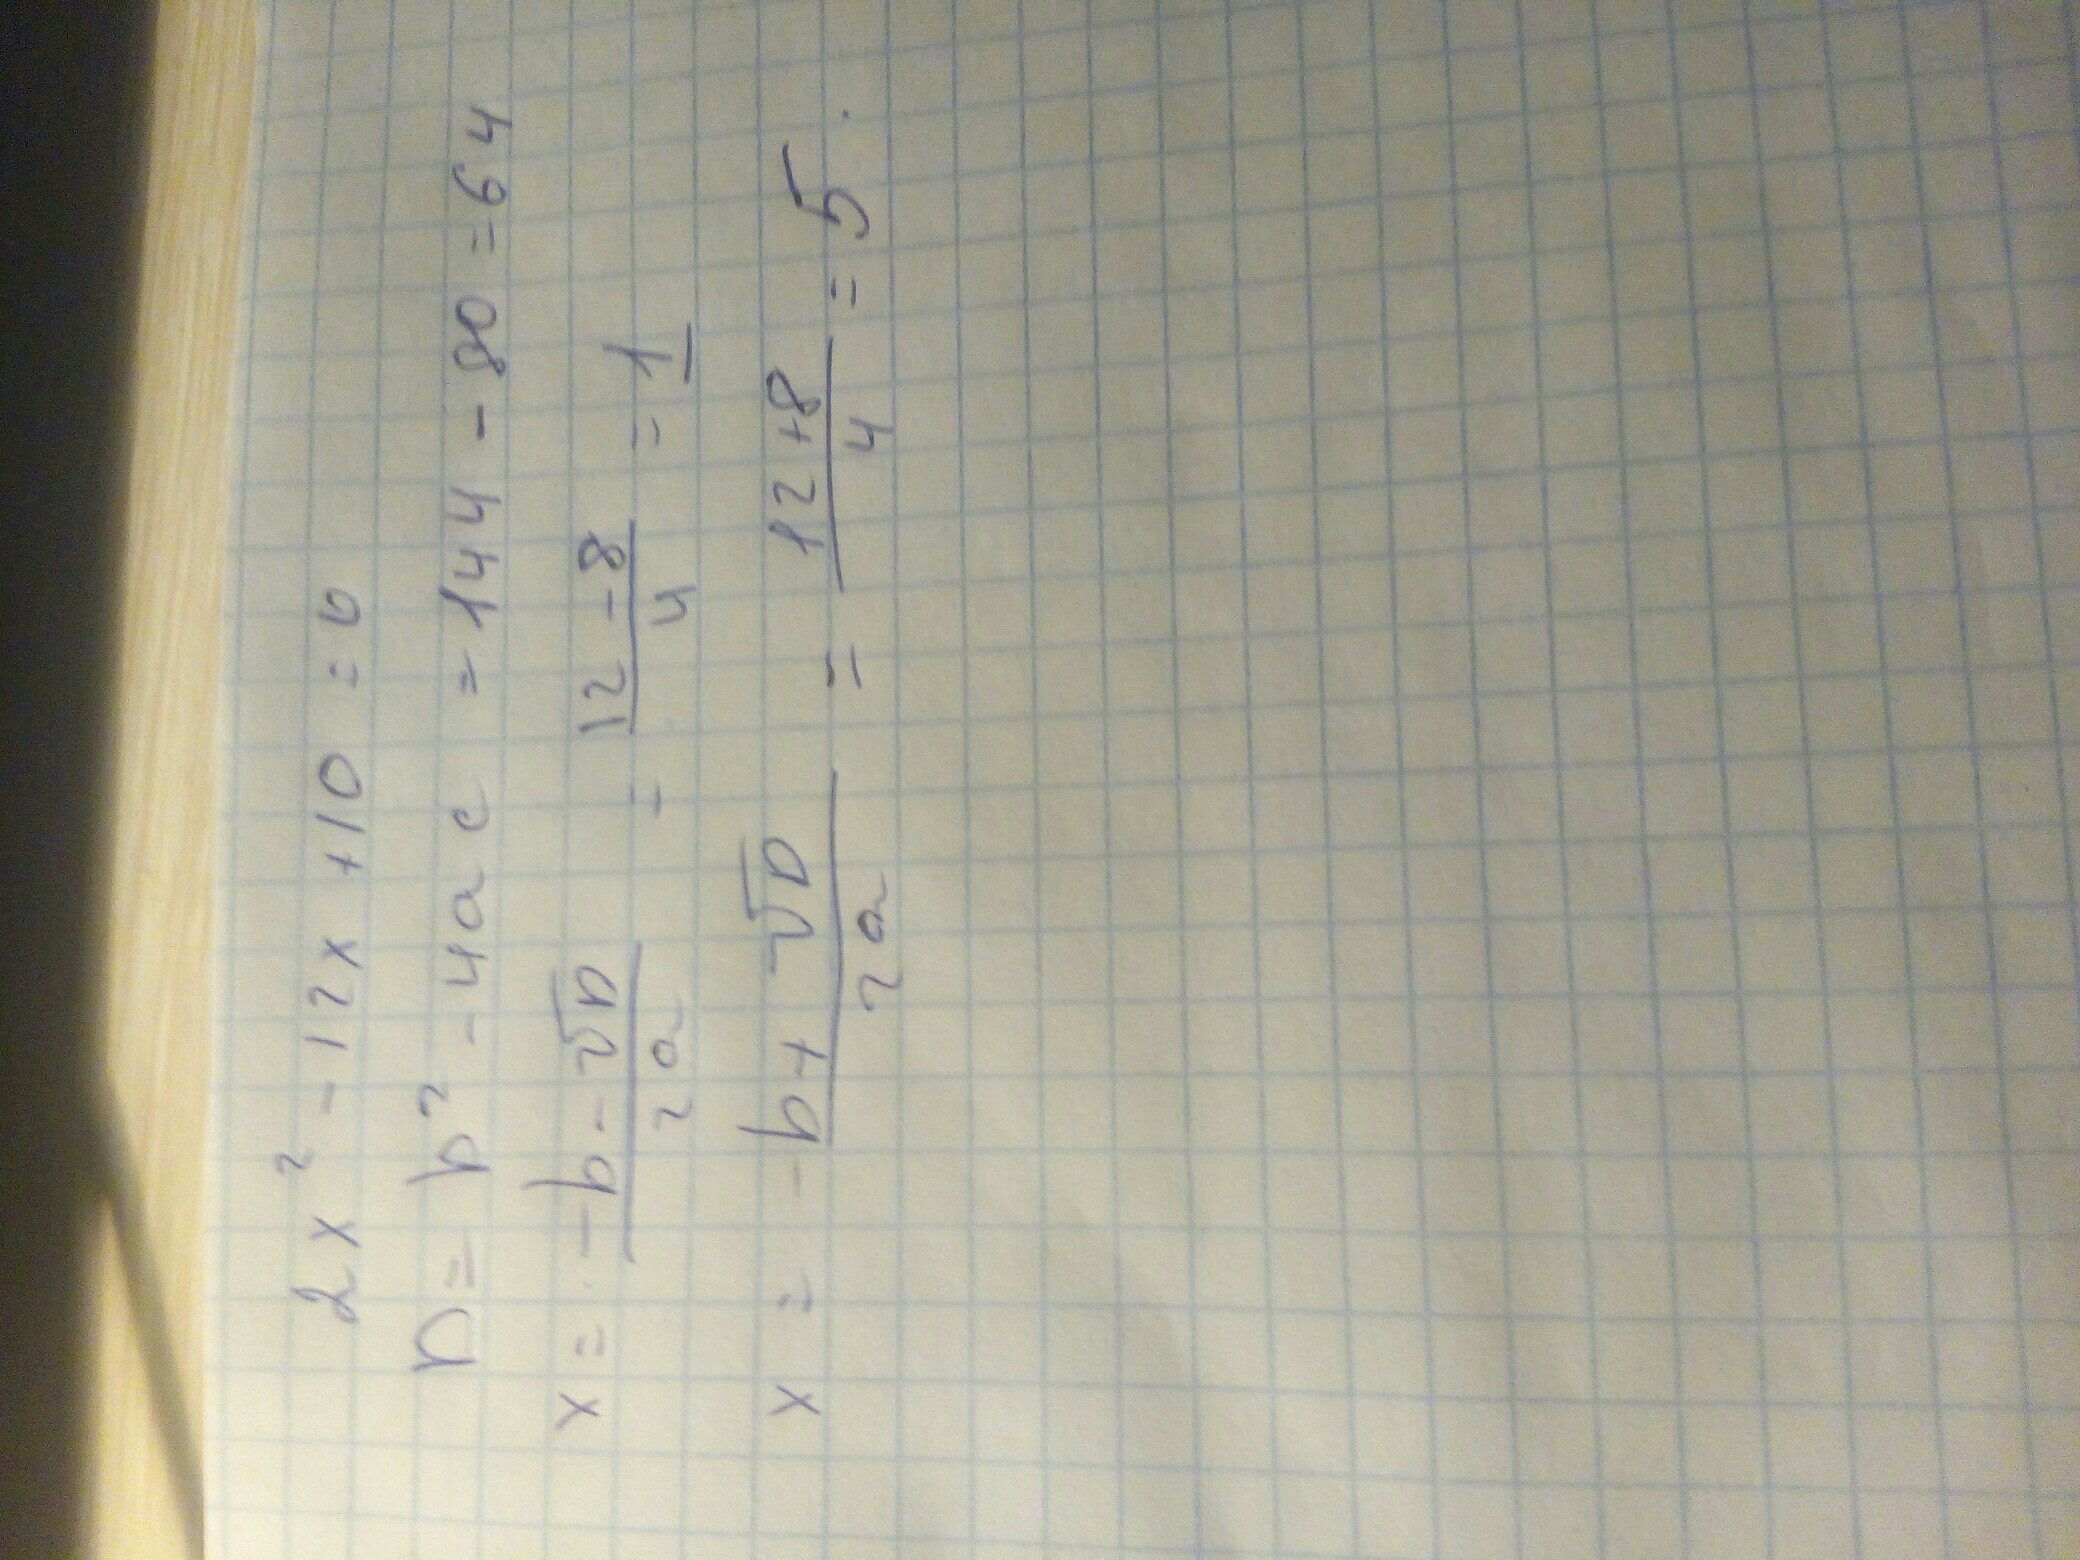 2x² - 12x + 10 = 0
D = b² - 4ac = 144 - 80 = 64
x = (-b - √D)/(2a) = (12 - 8)/4 = 1
x = (-b + √D)/(2a) = (12 + 8)/4 = 5.